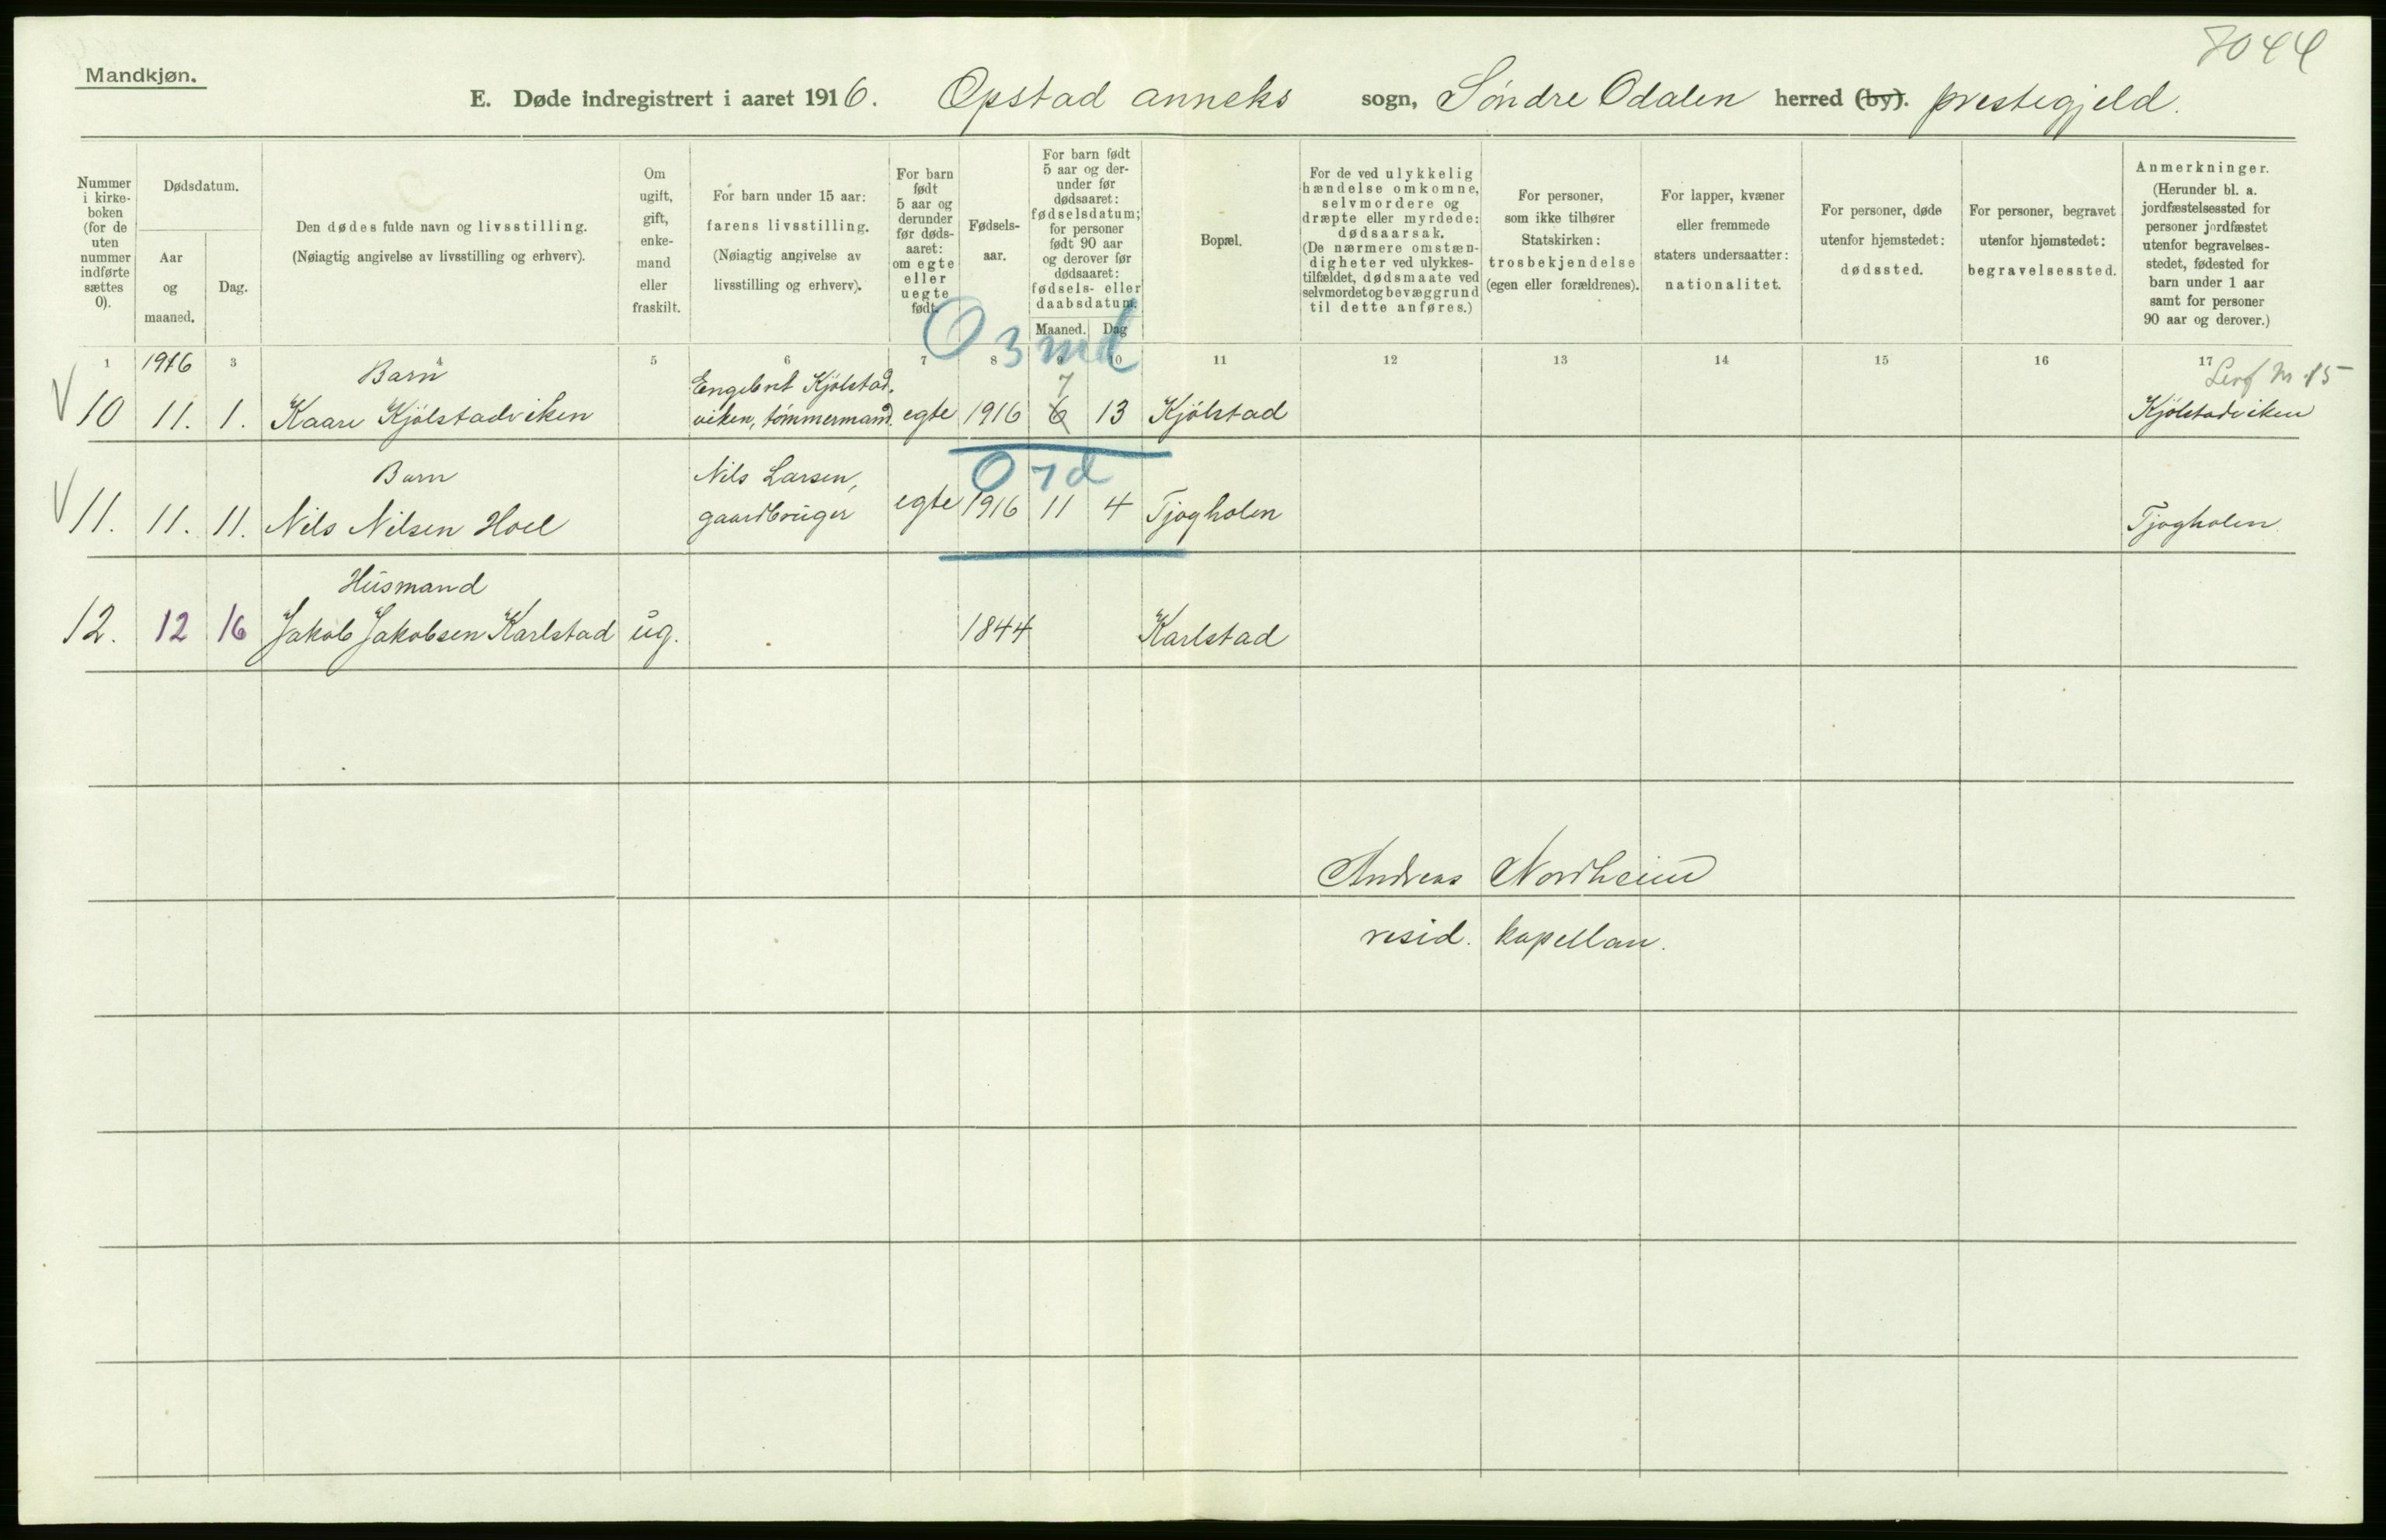 7044
Mandkjøn.
E. Døde indregistrert i aaret 1916. Opstad anneks sogn, Søndre Odalen herred (by). prestegjeld.
Nummer i kirke-boken (for de uten nummer indførte sættes 0).
Dødsdatum.
Aar og maaned.
Dag.
Den dødes fulde navn og livsstilling.
(Nøiagtig angivelse av livsstilling og erhverv).
Om ugift, gift, enke-mand eller fraskilt.
For barn under 15 aar:
farens livsstilling.
(Nøiagtig angivelse av livsstilling og erhverv).
For barn født 5 aar og derunder før døds-aaret: om egte eller uegte født.
Fødsels-aar.
For barn født 5 aar og der-under før dødsaaret: fødselsdatum; for personer født 90 aar og derover før dødsaaret: fødsels- eller daabsdatum.
Maaned. Dag
Bopæl.
For de ved ulykkelig hændelse omkomne, selvmordere og dræpte eller myrdede: dødsaarsak.
(De nærmere omstæn-digheter ved ulykkes-tilfældet, dødsmaate ved selvmordet og bevæggrund til dette anføres.)
For personer, som ikke tilhører Statskirken: trosbekjendelse (egen eller forældrenes).
For lapper, kvæner eller fremmede staters undersaatter: nationalitet.
For personer, døde utenfor hjemstedet: dødssted.
For personer, begravet utenfor hjemstedet: begravelsessted.
Anmerkninger.
(Herunder bl. a. jordfæstelsessted for personer jordfæstet utenfor begravelses-stedet, fødested for barn under 1 aar samt for personer 90 aar og derover.)
0 3 md
1 1916 3 4 5 6 7 8 9 10 11 12 13 14 15 16 17
Barn Engebret Kjølstad- 7
10 11. 1. Kaare Kjølstadviken viken, tømmermand. egte 1916 6 13 Kjølstad Kjølstadviken
0 7 d
Barn Nils Larsen,
11. 11. 11. Nils Nilsen Hoel gaardbruger egte 1916 11 4 Tjogholen Tjogholen.
Husmand
12. 12 16 Jakob Jakobsen Karlstad ug. 1844 Karlstad
Andreas Nordheim
resid. kapellan.